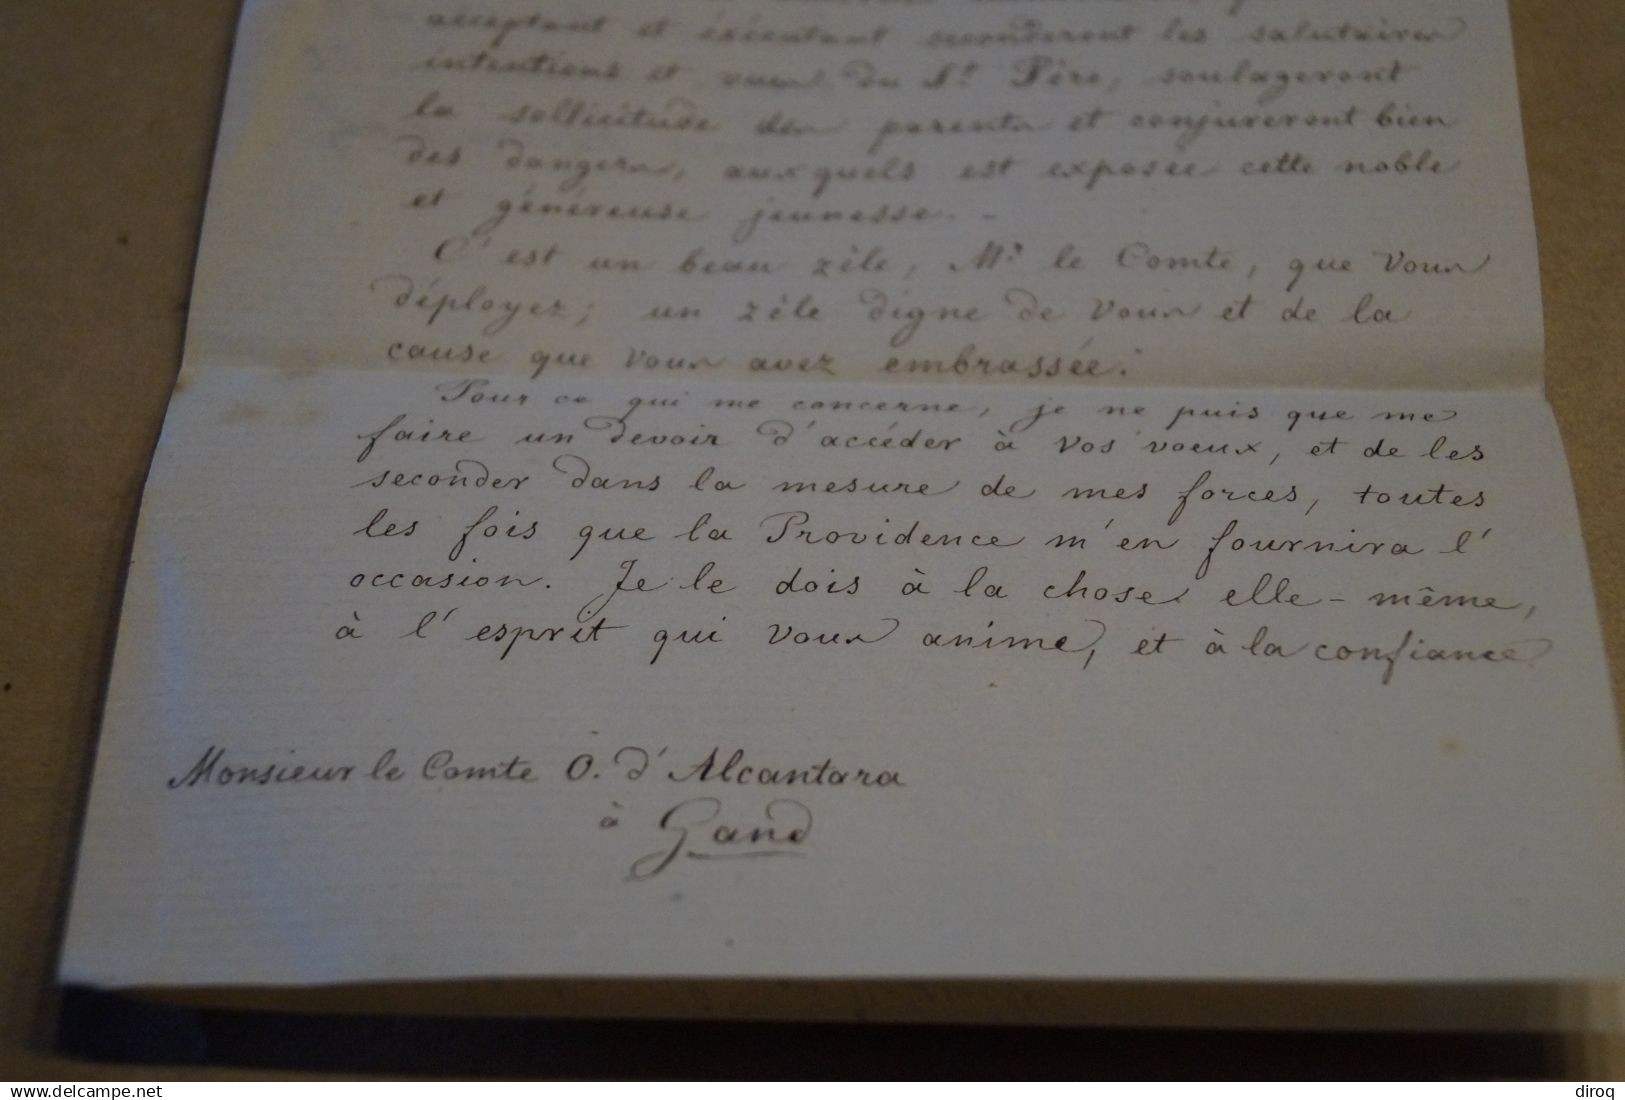 acceptant et exécutant seconderont les salutaires
intentions et vues du St. Père, soulageront
la sollicitude des parents et conjureront bien
des dangers, auxquels est exposée cette noble
et généreuse jeunesse. -
C'est un beau zèle, Mr. le Comte, que Vous
déployez; un zèle digne de Vous et de la
cause que Vous avez embrassée.
Pour ce qui me concerne, je ne puis que me
faire un devoir d'accéder à Vos voeux, et de les
seconder dans la mesure de mes forces, toutes
les fois que la Providence m'en fournira l'
occasion. Je le dois à la chose elle-même,
à l'esprit qui Vous anime, et à la confiance
Monsieur le Comte O. d'Alcantara
à Gand
www.delcampe.net
diroq